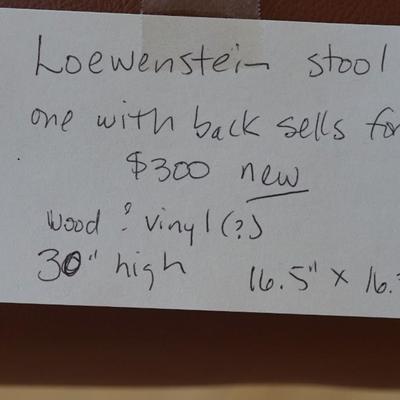 Loewenstein stool
one with back sells for
$300 new
wood & vinyl (?)
30" high 16.5" x 16.